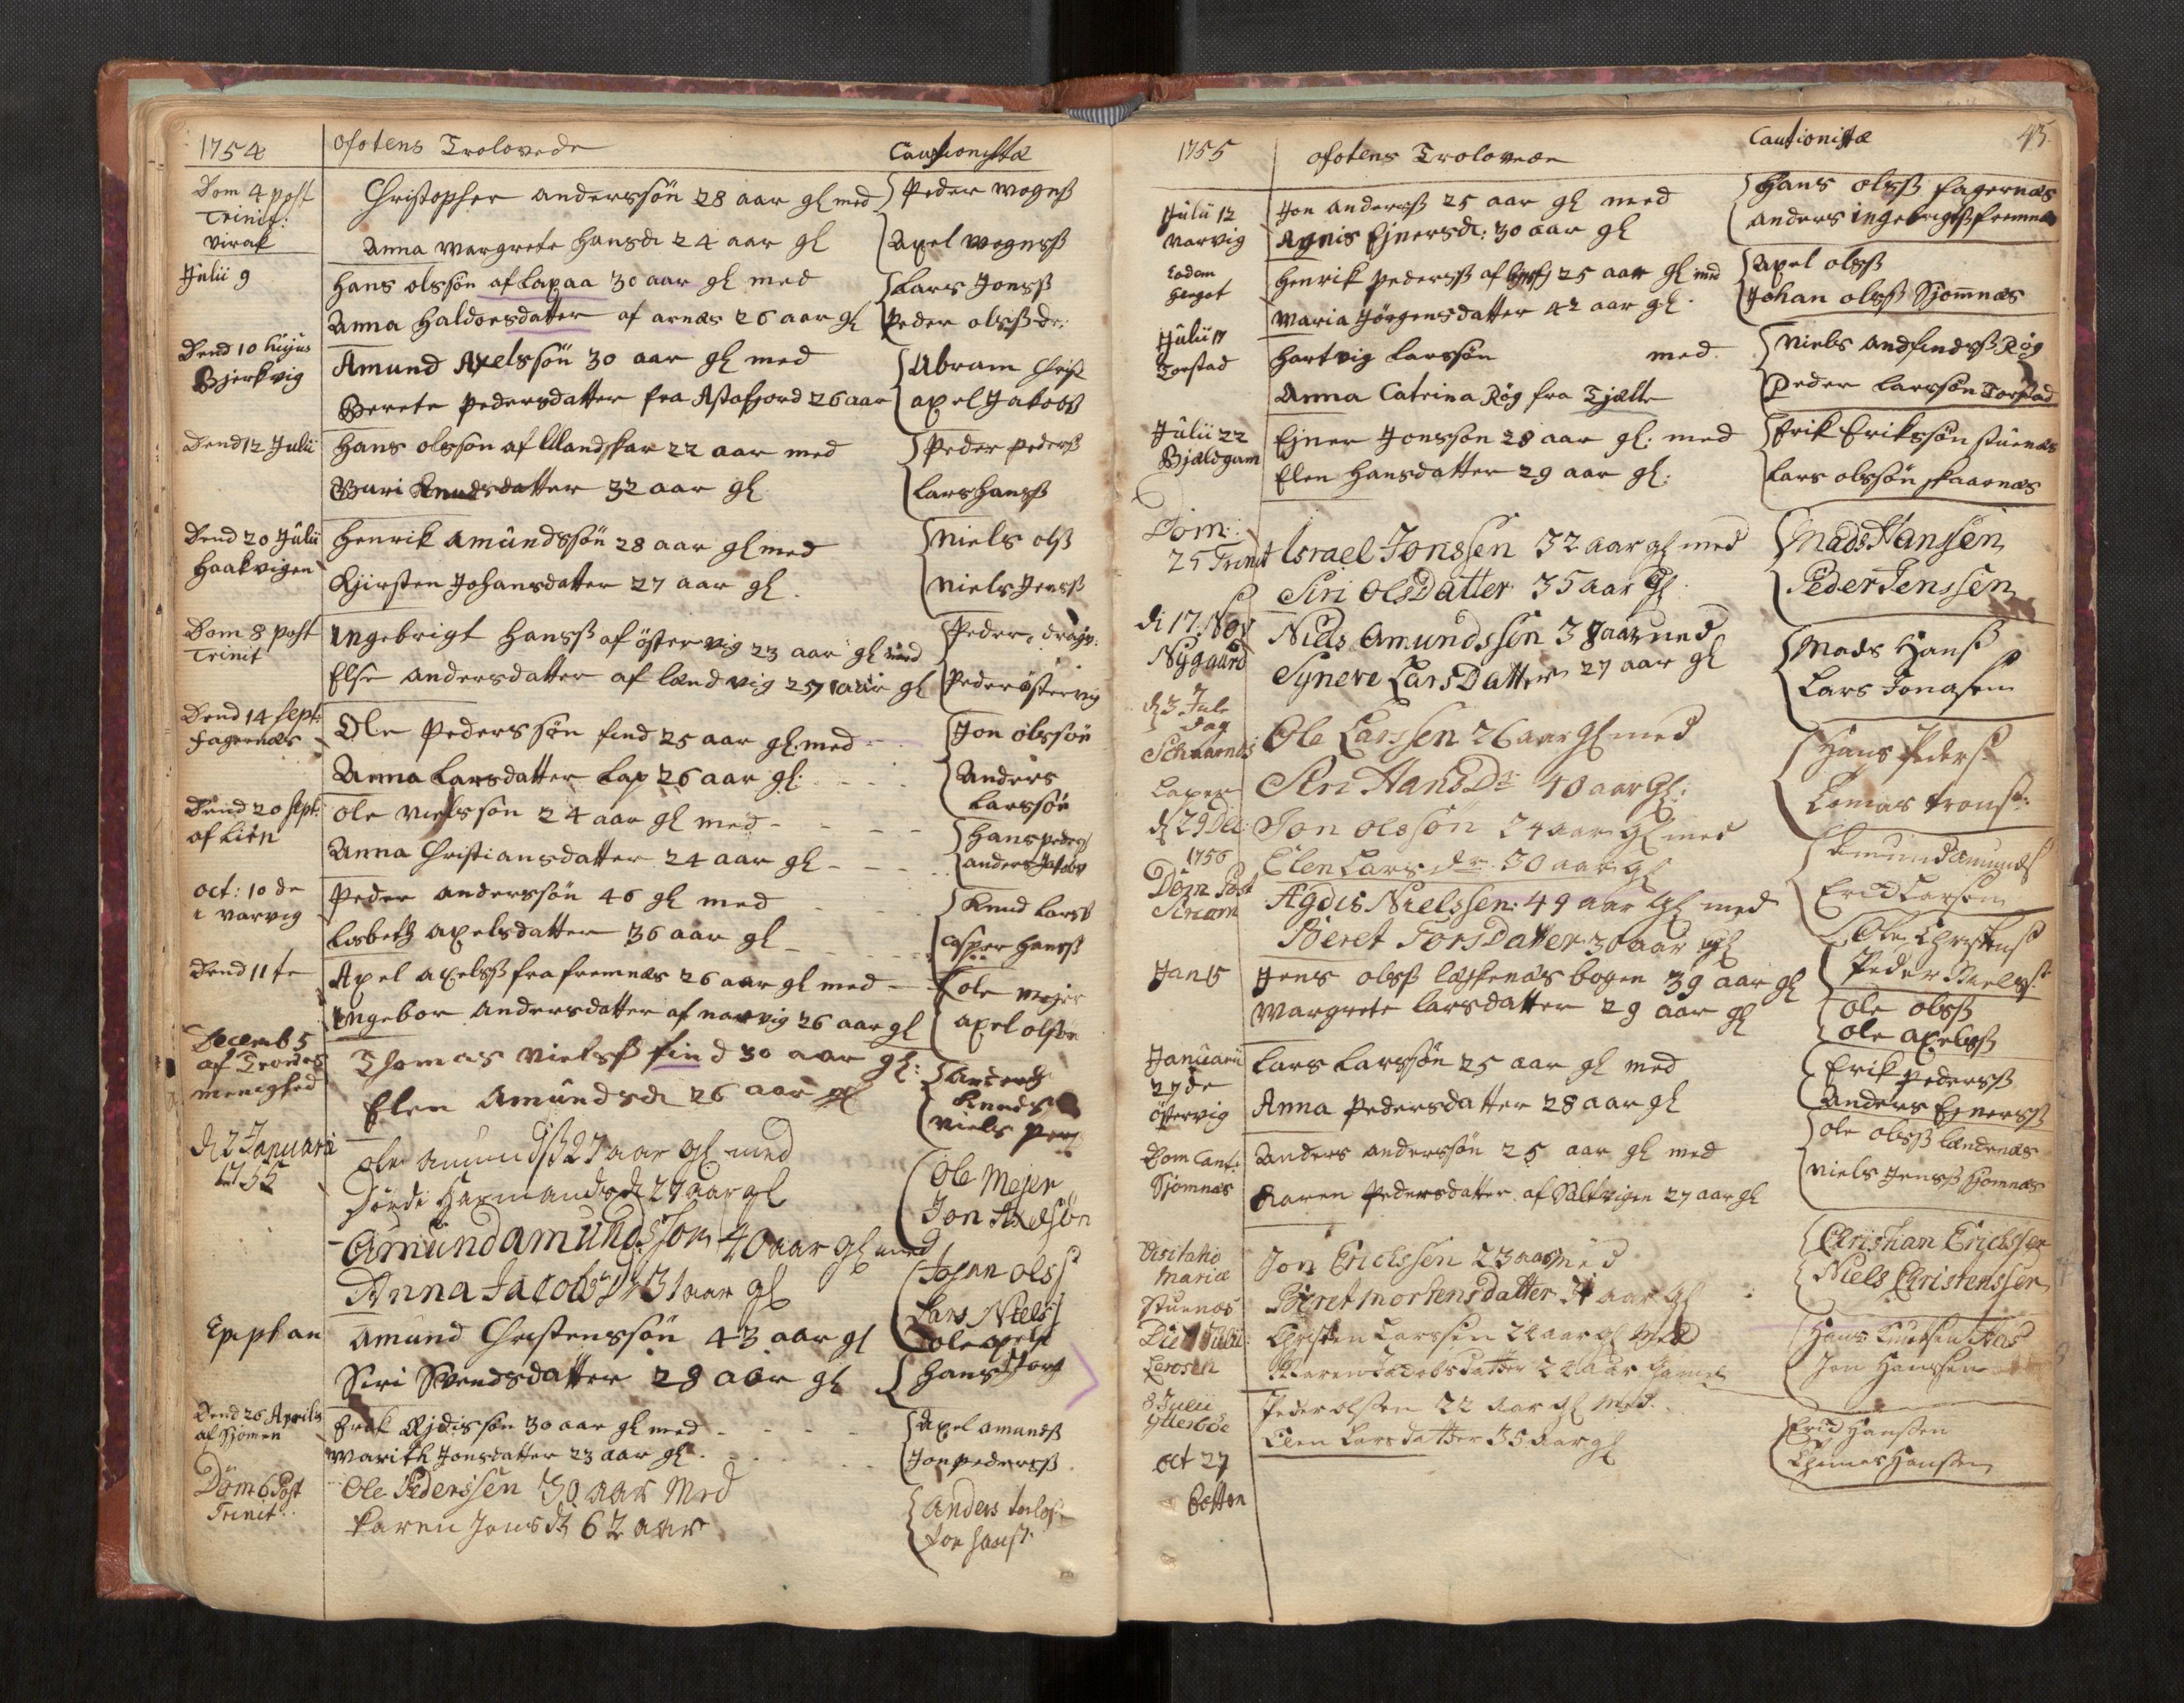 1754
Ofotens Trolovede
Cautionistæ
Dom 4 post
Trinit:
virak
Christopher Anderssøn 28 aar gl med
Anna Margrete Hansd: 24 aar gl
Peder Mognss
Axel Mognss
Julii 9
Hans Olssøn af Lapaa 30 aar gl med
Anna Haldorsdatter af Arnæs 26 aar gl
Lars Jonss
Peder Olss
Dend 10 hujus
Bjerkvig
Amund Axelssøn 30 aar gl med
Berete Pedersdatter fra Astafjord 26 aar
Abram Christ
Axel Jakobs
Dend 12 Julii
Hans Olsson af Ulandskar 22 aar med
Guri Knudsdatter 32 aar gl
Peder Pederss
Lars Hanss
Dend 20 Julii
Haakvigen
Henrik Amundssøn 28 aar gl med
Kjirsten Johansdatter 27 aar gl.
Niels Olss
Niels Jenss
Dom 8 post
Trinit
Ingebrigt Hanss af Østervig 23 aar gl med
Else Andersdatter af Lændvig 25 aar gl
Peder
Peder Østervig
Dend 14 Sept:
Fagernæs
Ole Pederssøn find 25 aar gl: med
Anna Larsdatter Lap 26 aar gl:
Jon Olssøn
Anders
Larssøn
Dend 20 Sept:
af Liin
Ole Nielsson 24 aar gl med
Anna Christiansdatter 24 aar gl
Hans Peders
Anders Jakobs
Oct: 10 de
i Narvig
Peder Anderssøn 46 gl med
Lisbeth Axelsdatter 36 aar gl
Knud Larss
Casper Hanss
Dend 11 te
Axel Axelss fra Fremnæs 26 aar gl med
Ingebor Andersdatter af Narvig 26 aar gl
Ole Mejer
Axel Olsøn
Decemb 5
af Trondes
menighed
Thomas Nielss find 30 aar gl:
Elen Amundsd: 26 aar gl
Knuds
Niels Pers
d. 2 Januarii
1755
Ole Amundss 27 aar gl med
Hermandsd: 27 aar gl
Ole Mejer
Jon Axelsøn
Amund Amundssøn 40 aar gl med
Anna Jacobs Dr 31 aar gl
Johan Olss
Lars Niels
Epiphan
Amund Christenssøn 43 aar gl
Siri Svendsdatter 28 aar gl
Ole Axels
Hans
Dend 26 Aprilis
af Sjomen
Erik Ejdissøn 30 aar gl med
Marith Jonsdatter 23 aar gl.
Axel Amundss
Jon Pederss
Dom 6 Post
Trinit:
Ole Pederssen 30 aar med
Karen Jonsdr 62 aar
Anders
Hanss
1755
Ofotens Trolovede
Cautionistæ
45.
Julii 12
Narvig
Jon Anderss 25 aar gl med
Agnis Ejnersd: 30 aar gl
Hans Olss Fagernæs
Anders Ingebrigtss Fremnæs
Eodem
Henrik Pederss af 25 aar gl med
Maria Jørgensdatter 42 aar gl.
Axel Olss
Johan Olss Sjomnæs
Julii 17
Torstad
Hartvig Larssøn med
Anna Catrina Røg fra Tjælle
Niels Andfindss Røg
Peder Larssøn Torstad
Julii 22
Bjældgam
Ejner Jonsson 28 aar gl: med
Elen Hansdatter 29 aar gl:
Erik Erikssøn Stuenæs
Lars Olssøn Skaarnæs
Dom:
25 Trinit
Israel Jonssen 32 aar gl med
Siri Olsdatter 35 aar gl.
Mads Hanssen
Peder Jenssen
d. 17. Nov
Nygaard
Niels Amundsson 38 aar med
Synere Larsdatter 27 aar gl
Mads Hanss
Lars Jonassen
d. 3 Jule
dag
Ole Larssen 26 aar gl med
Siri Hans Dr 40 aar gl:
Hans Pederss
d. 29 Dec:
Jon Olsson 24 aar gl med
Elen Lars dr 30 aar gl
Amund Amunds
Erich Larsen
1756
Dom Post
Ægdis Nielssen: 49 aar gl med
Beret Tors Datter 30 aar gl
Ole Christenss
Peder Nielss
Jan 15
Jens Olss Laskenæsbogen 39 aar gl
Margrete Larsdatter 29 aar gl
Ole Olss
Ole Axelss
Januarii
27 de
Østervig
Lars Larssøn 25 aar gl med
Anna Pedersdatter 28 aar gl
Erik Pederss
Anders Ejnerss
Dom Cant:
Sjomnæs
Anders Anderssøn 25 aar gl med
Karen Pedersdatter af Saltvigen 27 aar gl
Ole Olss Lændenæs
Niels Jenss Sjomnæs
Visitatio
Mariæ
Stuenæs
Jon Erichssen 23 aar med
Beret Mortensdatter 31 aar gl
Christian Erichssen
Niels Christenssen
Die Julii
Christen Larssen 24 aar gl med
Maren Jacobsdatter 24 aar
Hans Knutsen
Jon Hanssen
8 Julii
Ytterböe
Peder Olssen 22 aar gl med
Elen Larsdatter 35 aar gl
Erich Hanssen
Thomas Hanssen
Oct 27